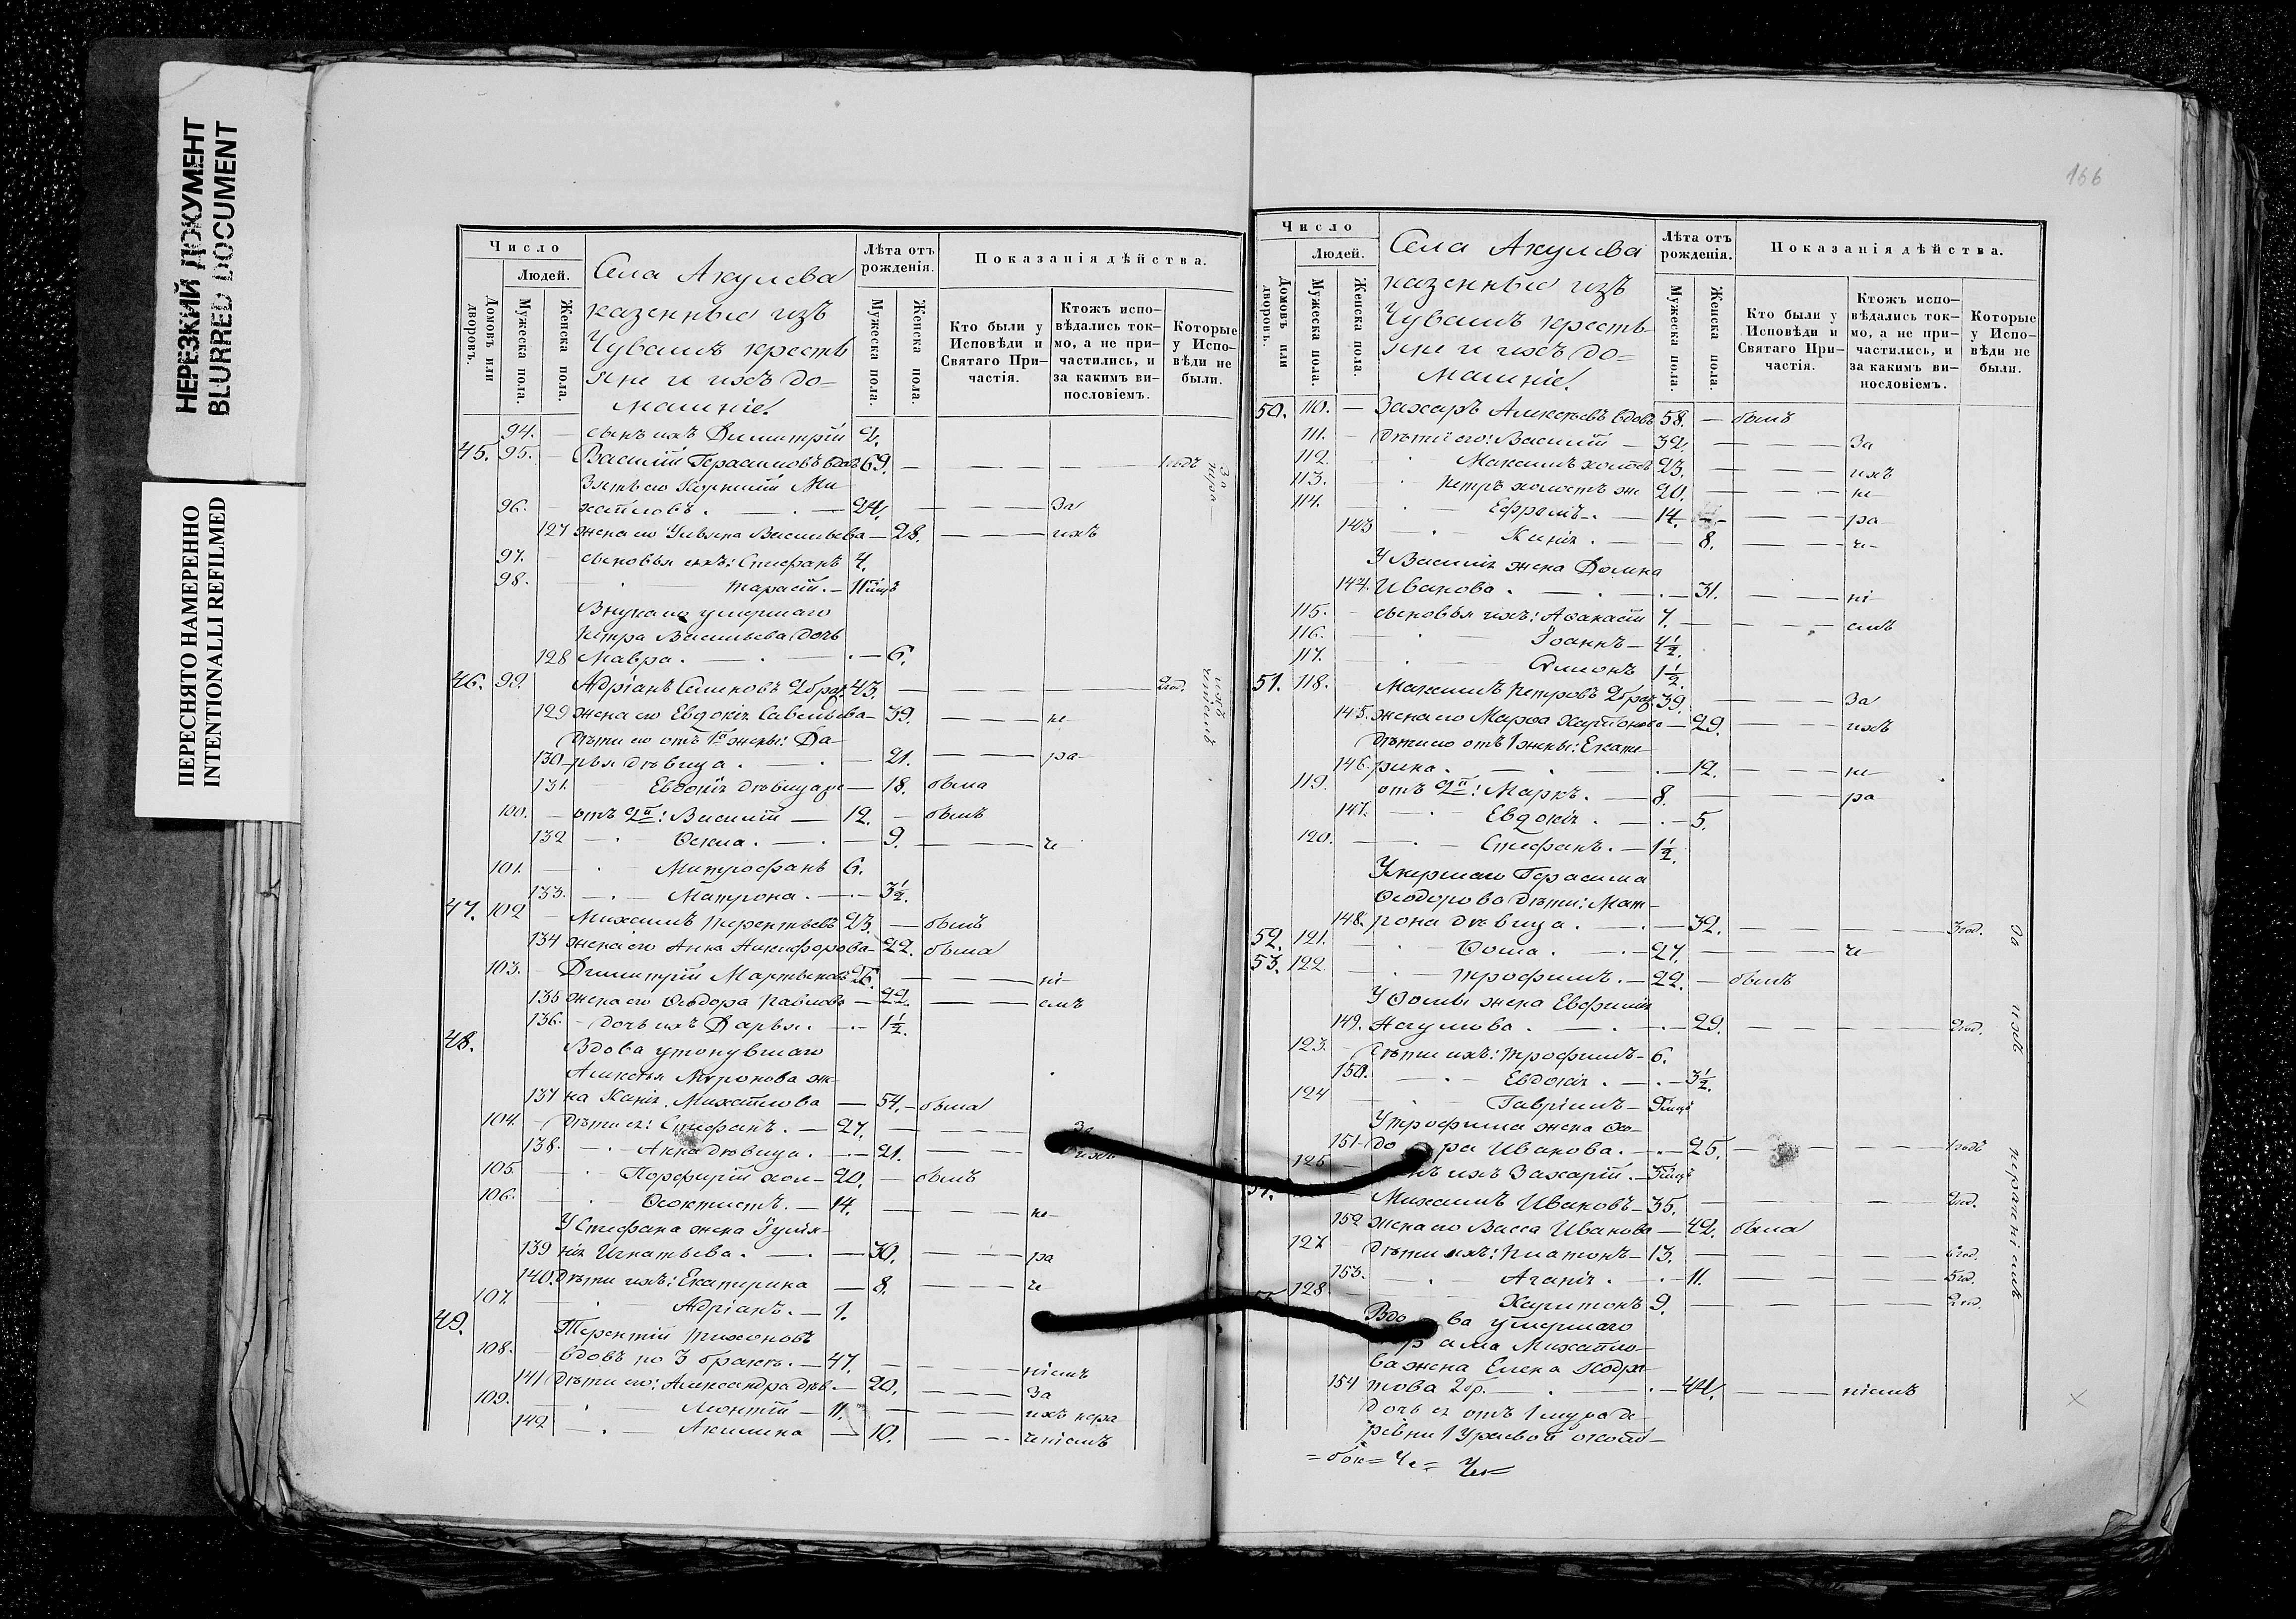 НЕРЕЗКИЙ ДОКУМЕНТ
BLURRED DOCUMENT
ПЕРЕСНЯТО НАМЕРЕННО
INTENTIONALLI REFILMED
Число
Людей.
Домовъ или дворовъ.
Мужеска пола.
Женска пола.
Села Акулева
казенныя изъ
Чувашъ кресть
яне и ихъ до=
машніе.
Лѣта отъ рожденія.
Мужеска пола.
Женска пола.
Показанія дѣйства.
Кто были у Исповѣди и Святаго При-частія.
Ктожъ испо-вѣдались ток-мо, а не при-частились, и за какимъ ви-пословіемъ.
Которые у Испо-вѣди не были.
94. — сынъ ихъ Димитрій 2.
45. 95. — Василій Герасимовъ вдов 69. — 1 годъ
Зять его Корнилій Ми-
96. — хайловъ. — 24. — За
127 жена его Ульяна Васильева — 28. — ихъ
97. сыновья ихъ: Стефанъ 4.
98. Тарасій. — 11
Внука его умершаго
Петра Васильева дочь
128 Мавра. — 6.
46. 99. Адріанъ Семеновъ 2 брак. 43. — 2 год.
129 жена его Евдокія Савельева — 39. — не
дѣти его отъ 1й жены: Да-
130 рья дѣвица. — 21. — ра
131. Евдокія дѣвица — 18. была
100. — отъ 2й: Василій — 12. — былъ
132 Фекла. — 9. — че
101. Митрофанъ 6.
133. Матрона. — 3½.
47. 102 Михаилъ Терентьевъ 23. — былъ
134 жена его Анна Никифорова — 22. была
103. Димитрій Мартыновъ 26. — ні
135 жена его Ѳеодора Павлова — 22. — емъ
136. — дочь ихъ Дарья. — 1½.
48. Вдова утонувшаго
Алексѣя Миронова же-
137 на Ксенія Михайлова — 54. — была
104. — Дѣти ея: Стефанъ. — 27. — За
138. Анна дѣвица. — 21. — ихъ
105. Порфирій хол — 20. — былъ
106. Ѳеоктистъ. — 14. — не
У Стефана жена Іулiа-
139 нія Игнатьева. — 30. — ра
140. Дѣти ихъ: Екатерина — 8. — че
107. Адріанъ. — 1.
49. Терентій Тихоновъ
108. вдовъ по 3 бракѣ. — 47. — ніемъ
141 Дѣти его: Александра дѣв. — 20. — За
109. Леонтій — 11. — ихъ нера
142 Акилина — 10. — ченіемъ
За нера
ихъ ченіемъ
166
Число
Людей.
Домовъ или дворовъ.
Мужеска пола.
Женска пола.
Села Акулева
казенныя изъ
Чувашъ кресть
яне и ихъ до=
машніе.
Лѣта отъ рожденія.
Мужеска пола.
Женска пола.
Показанія дѣйства.
Кто были у Исповѣди и Святаго При-частія.
Ктожъ испо-вѣдались ток-мо, а не при-частились, и за какимъ ви-пословіемъ.
Которые у Испо-вѣди не были.
50. 110. — Захаръ Алексѣевъ вдовъ 58. — былъ
111. Дѣти его: Василій — 32. — За
112. Максимъ холост 23. — ихъ
113. Петръ холостъ же 20. — не
114. Ефремъ. — 14. — ра
143 Ксенія. — 8. — че
У Василія жена Домна
144. Иванова. — 31. — ні
115. сыновья ихъ: Аѳанасій 7. — емъ
116. Іоаннъ — 4½.
117. Симеонъ 1½.
51. 118. Максимъ Петровъ 2 брак. 39. — За
145. жена его Марѳа Харитонова — 29. — ихъ
Дѣти его отъ 1 жены: Екате
146. рина. — 12. — не
119. отъ 2й: Маркъ. — 8. — ра
147. Евдокія. — 5.
120. Стефанъ. — 1½.
Умершаго Герасима
Ѳеодорова дѣти: Мат-
148. рона дѣвица. — 32. — 3 год.
52. 121. Ѳома. — 27. — че
53. 122. Трофимъ. — 22. — былъ
У Ѳомы жена Евфимія
149. Наумова. — 29. — 2 год.
123. Дѣти ихъ: Трофимъ — 6.
150. Евдокія. — 3½.
124 Гавріилъ —
У Трофима жена Ѳео-
151 до ра Иванова. — 25. — 1 годъ
125 нъ ихъ Захарій. —
Михаилъ Ивановъ — 35. — 2 год.
152 жена его Васса Иванова — 42. была
127 Дѣти ихъ: Платонъ — 13. — 4 год.
153. Агапія. — 11. — 5 год.
128 Харитонъ 9. — 2 год.
Вдо ва умершаго
ама Михайло-
ва жена Елена Кодра
154 това 2 бр. — 44. — ніемъ
дочь ея отъ 1 мужа де-
ревни
За ихъ нераченіемъ